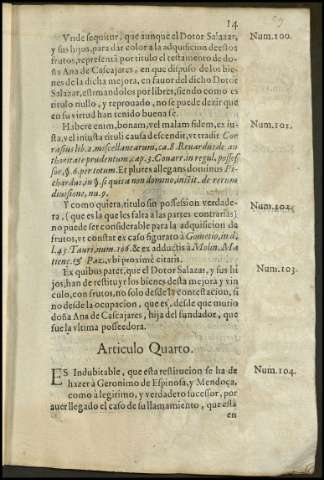 14
Vnde sequitur, que aunque el Dotor Salazar, Num.100.
y sus hijos, para dar color a la adquisicion de estos
frutos, representa por titulo el testamento de do-
ña Ana de Cascajares, en que dispuso de los bie-
nes de la dicha mejora, en fauor del dicho Dotor
Salazar, estimandolos por libres, siendo como es
titulo nullo, y reprouado, no se puede dezir que
en su virtud han tenido buena fe.
Habere enim, bonam, vel malam fidem, ex iu- Num.101.
sta, vel iniusta tituli causa descendit, vt tradit Cor
rasius lib. 2. miscellanearum, ca. 8. Reuardus de au
thoritate prudentum, cap. 3. Couarr. in regul. posses
sor, §. 6. per totum. Et plures allegans dominus Pi
chardus, in §. si quis a non domino, instit. de rerum
diuisione, nu. 9.
Y como quiera, titulo sin possession verdade- Num.102.
ra, (que es la que les falta a las partes contrarias)
no puede ser considerable para la adquisicion de
frutos, vt constat ex casu figurato à Gomezio, in d.
l. 45 Tauri, num. 108. & ex adductis à Molin. Ma
tienz. & Paz, vbi proximè citatis.
Ex quibus patet, que el Dotor Salazar, y sus hi Num.103.
jos, han de restituyr los bienes desta mejora y vin
culo, con frutos, no solo desde la contestacion, si
no desde la ocupacion, que es, desde que murio
doña Ana de Cascajares, hija del fundador, que
fue la vltima posseedora.
Articulo Quarto.
ES Indubitable, que esta restitucion se ha de Num.104.
hazer à Geronimo de Espinosa, y Mendoça,
como à legitimo, y verdadero sucessor, por
auer llegado el caso de su llamamiento, que está
en